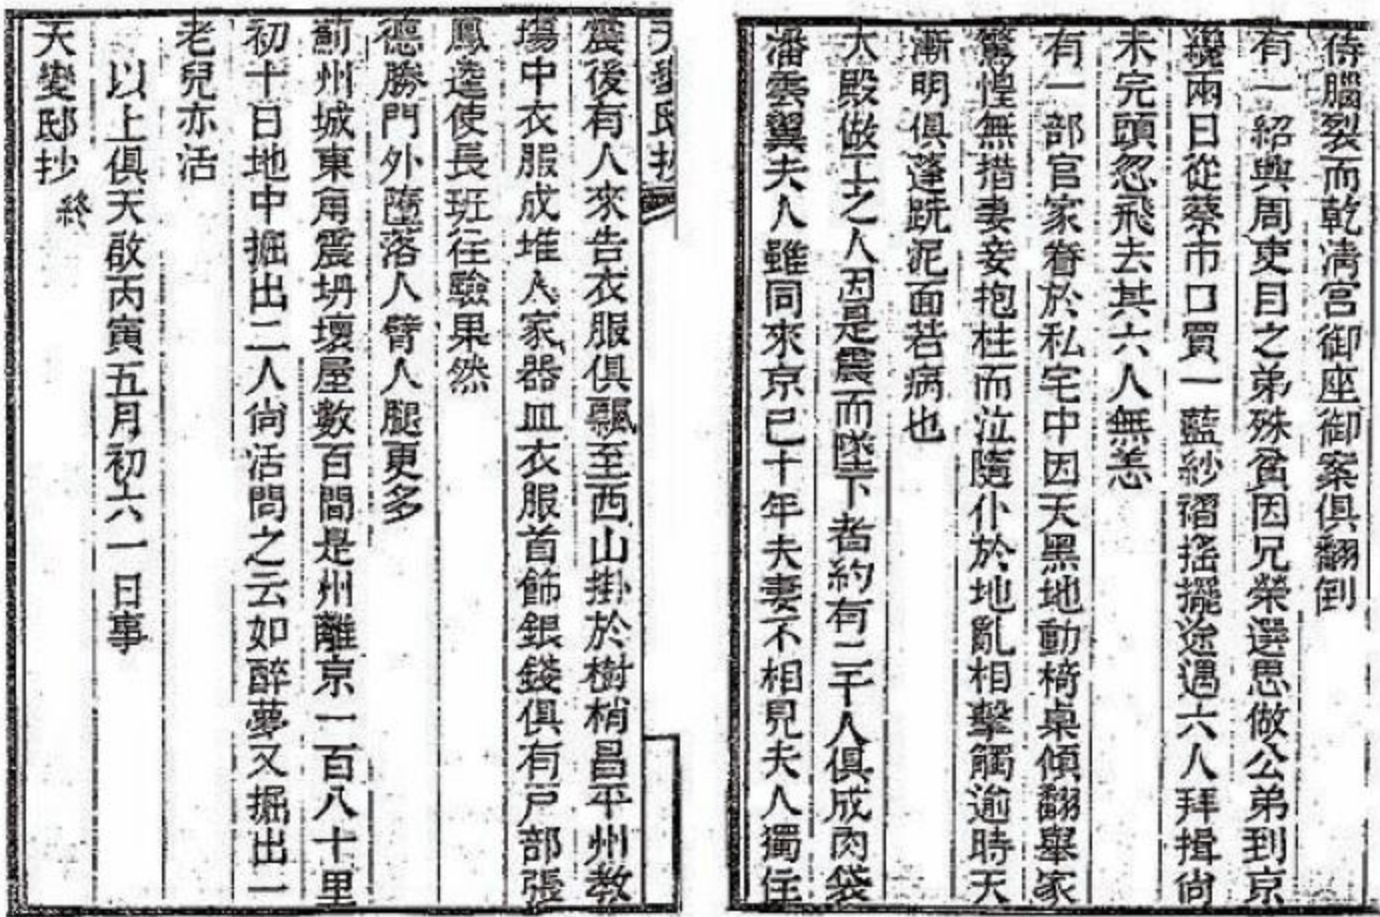 侍腦裂而乾清宮御座御案俱翻倒
有一紹興周吏目之弟殊貧因兄榮選思做公弟到京
纔兩日從蔡市口買一藍紗褶搖擺途遇六人拜揖尚
未完頭忽飛去其六人無恙
有一部官家眷於私宅中因天黑地動椅桌傾翻舉家
驚惶無措妻妾抱柱而泣隨仆於地亂相擊觸逾時天
漸明俱蓬跣泥面若病也
大殿做工之人因是震而墜下者約有二千人俱成肉袋
潘雲翼夫人雖同來京已十年夫妻不相見夫人獨住
天變邸抄
震後有人來告衣服俱飄至西山掛於樹梢昌平州教
場中衣服成堆人家器皿衣服首飾銀錢俱有戶部張
鳳逵使長班往驗果然
德勝門外墮落人臂人腿更多
薊州城東角震坍壞屋數百間是州離京一百八十里
初十日地中掘出二人尚活問之云如醉夢又掘出一
老兒亦活
以上俱天啟丙寅五月初六一日事
天變邸抄 終